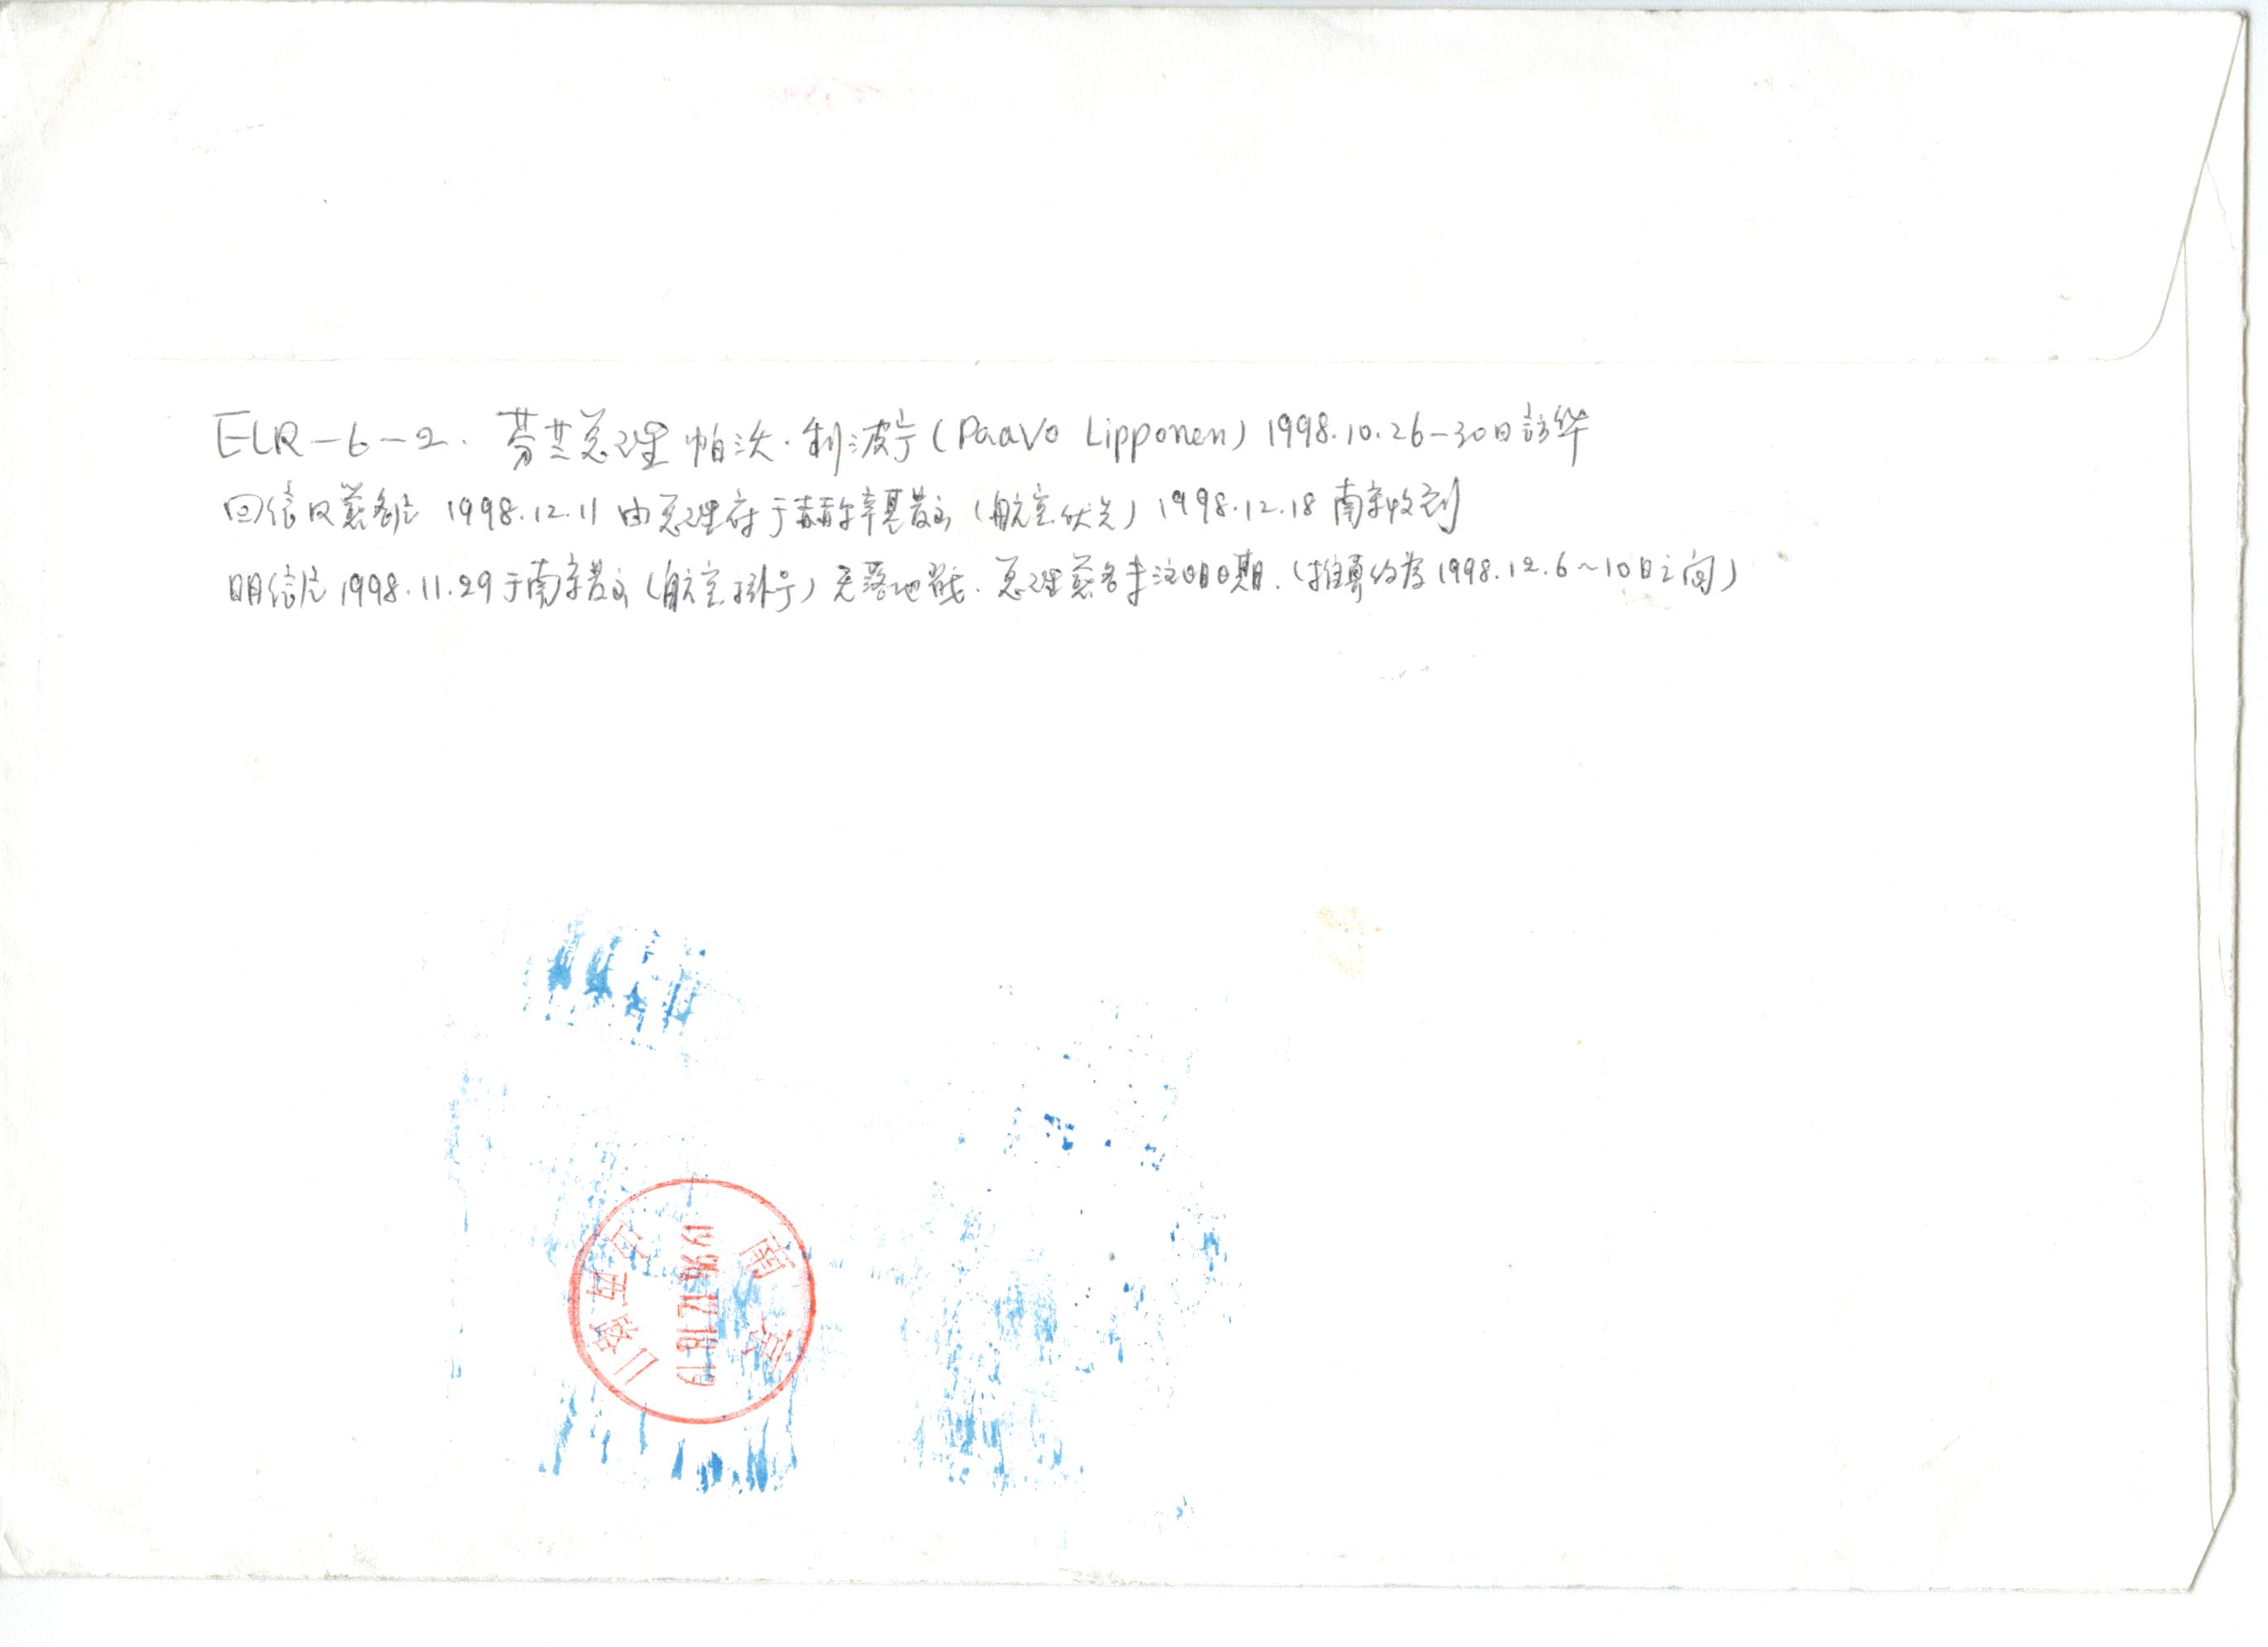 ELR-6-2. 芬兰总理 帕沃·利波宁 (Paavo Lipponen) 1998.10.26-30日访华
回信及签名片 1998.12.11 由总理府于赫尔辛基发出 (航空优先) 1998.12.18 南京收到
明信片 1998.11.29 于南京发出 (航空挂号) 无落地戳. 总理签名未注明日期. (推算约为1998.12.6~10日之间)
南京
1998.12.18.19